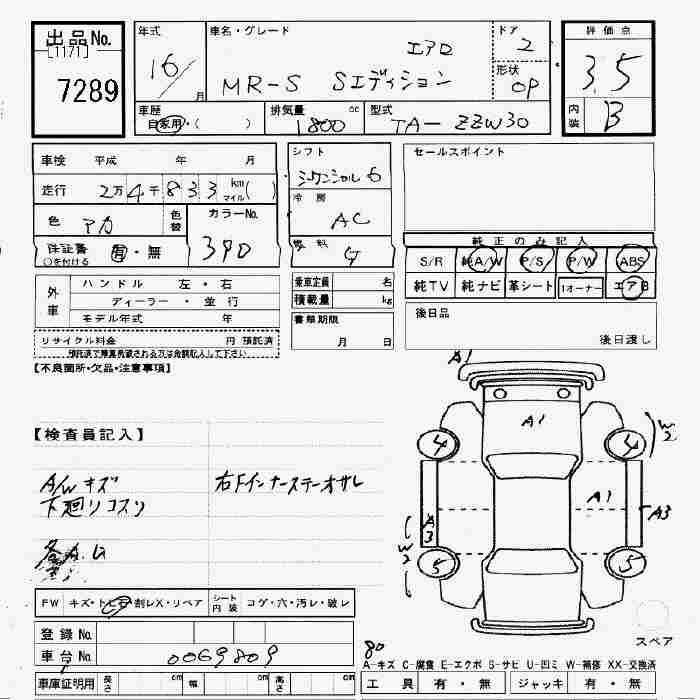 出品No.
[1171]
7289
年式
16/
月
車名・グレード
エアロ
MR-S Sエディション
ドア
2
形状
OP
評価点
3.5
内装
B
車歴
自家用・( )
排気量
cc
1800
型式
TA- ZZW30
車検 平成 年 月
走行 2万4千833 km マイル( )
色 アカ
色替
カラーNo.
390
保証書
○を付ける
有・無
シフト
シーケンシャル 6
冷房
AC
燃料
セールスポイント
純正のみ記入
S/R 純A/W P/S P/W ABS
純TV 純ナビ 革シート 1オーナー エアB
外車
ハンドル 左・右
ディーラー・並行
モデル年式 年
乗車定員 名
積載量 kg
書類期限
月 日
後日品
後日渡し
リサイクル料金 円 預託済
預託済で廃棄希望される方は金額記入して下さい
【不良箇所・欠品・注意事項】
【検査員記入】
A/W キズ
下廻リコスリ
右Fインナーステーオサレ
各A.U
A1
A1
4
4
W2
A1
A3
A3
W2
5
5
スペア
FW キズ・トビ石・割レX・リペア
シート内装 コゲ・穴・汚レ・破レ
登録No.
車台No. 0069809
車庫証明用 長さ cm 幅 cm 高さ cm
80
A-キズ C-腐食 E-エクボ S-サビ U-凹ミ W-補修 XX-交換済
工具 有・無 ジャッキ 有・無